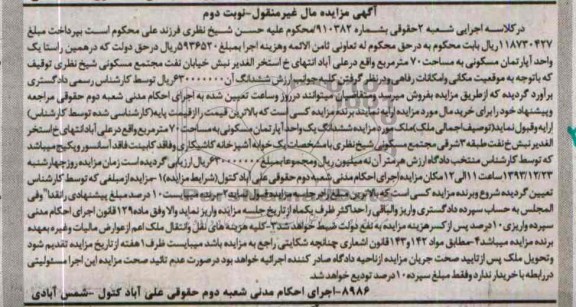 آگهی مزایده مال غیرمنقول-نوبت دوم
درکلاسه اجرایی شعبه ۲حقوقی بشماره ۹۱۰۳۸۲/محکوم علیه حسن شیخ نظری فرزند علی محکوم است بپرداخت مبلغ
۱۱۸۷۳۰۴۲۷ ریال بابت محکوم به درحق محکوم له تعاونی ثامن الائمه وهزینه اجرا بمبلغ ۵۹۳۶۵۲۰ریال درحق دولت که درهمین راستا یک
واحد آپارتمان مسکونی به مساحت ۷۰ مترمربع واقع درعلی آباد انتهای خ استخر الغدیر نبش خیابان نفت مجتمع مسکونی شیخ نظری توقیف
که باتوجه به موقعیت مکانی وامکانات رفاهی ودرنظر گرفتن کلیه جوانب ارزش ششدانگ آن ۶۳۰۰۰۰۰۰۰ریال توسط کارشناس رسمی دادگستری
برآورد گردیده که ازطریق مزایده بفروش میرسد ومتقاضیان میتوانند درروز وساعت تعیین شده به اجرای احکام مدنی شعبه دوم حقوقی مراجعه
وپیشنهاد خود را برای خرید مال مورد مزایده ارایه نمایند برنده مزایده کسی است که بالاترین قیمت را ازقیمت پایه(کارشناسی شده توسط کارشناس)
ارایه وقبول نماید(توصیف اجمالی ملک)ملک مورد مزایده ششدانگ یک واحد آپارتمان مسکونی به مساحت ۷۰ مترمربع واقع درعلی آباد انتهای خ استخر
الغدیر نبش خ نفت طبقه ۳ شرقی مجتمع مسکونی شیخ نظری با مشخصات یک خوابه آشپزخانه کاشیکاری وفاقد کابینت فاقد آسانسور وپکیج میباشد
که توسط کارشناس منتخب دادگاه ارزش هرمتر آن نه میلیون ریال ومجموعا بمبلغ ۶۳۰۰۰۰۰۰۰ریال ارزیابی گردیده است زمان مزایده روز چهارشنبه
۱۳۹۳/۱۲/۲۳ ساعت ۱۱ الی ۱۲ مکان مزایده اجرای احکام مدنی شعبه دوم حقوقی علی آباد کتول (شرایط مزایده)۱-مزایده ازمبلغی که توسط کارشناس
تعیین گردیده شروع وبرنده مزایده کسی است که بالاترین مبلغ را در جلسه مزایده قبول نماید۲-برنده میبایست ۱۰ درصد مبلغ پیشنهادی را نقدا" وفی
المجلس به حساب سپرده دادگستری واریز والباقی را حداکثر ظرف یکماه ازتاریخ جلسه مزایده واریز نماید والا وفق ماده ۱۲۹ قانون اجرای احکام مدنی
سپرده واریزی ۱۰ درصد پس ازکسر هزینه مزایده به نفع دولت ضبط خواهد شد۳-کلیه هزینه های نقل وانتقال ملک اعم ازعوارض مالیات وغیره بعهده
برنده مزایده میباشد۴-مطابق مواد ۱۴۲ و۱۴۳ قانون اشعاری چنانچه شکایتی راجع به مزایده باشد میبایست ظرف ۱ هفته از تاریخ مزایده تقدیم شود
وتحویل ملک پس ازتایید صحت جریان مزایده ازناحیه دادگاه صادر کننده اجرائیه خواهد بود درصورت عدم تائید صحت مزایده این اجرا مسئولیتی
دررابطه با خریدار ندارد وفقط مبلغ سپرده ۱۰ درصد تودیع خواهد شد.
۸۹۸۶-اجرای احکام مدنی شعبه دوم حقوقی علی آباد کتول -شمس آبادی